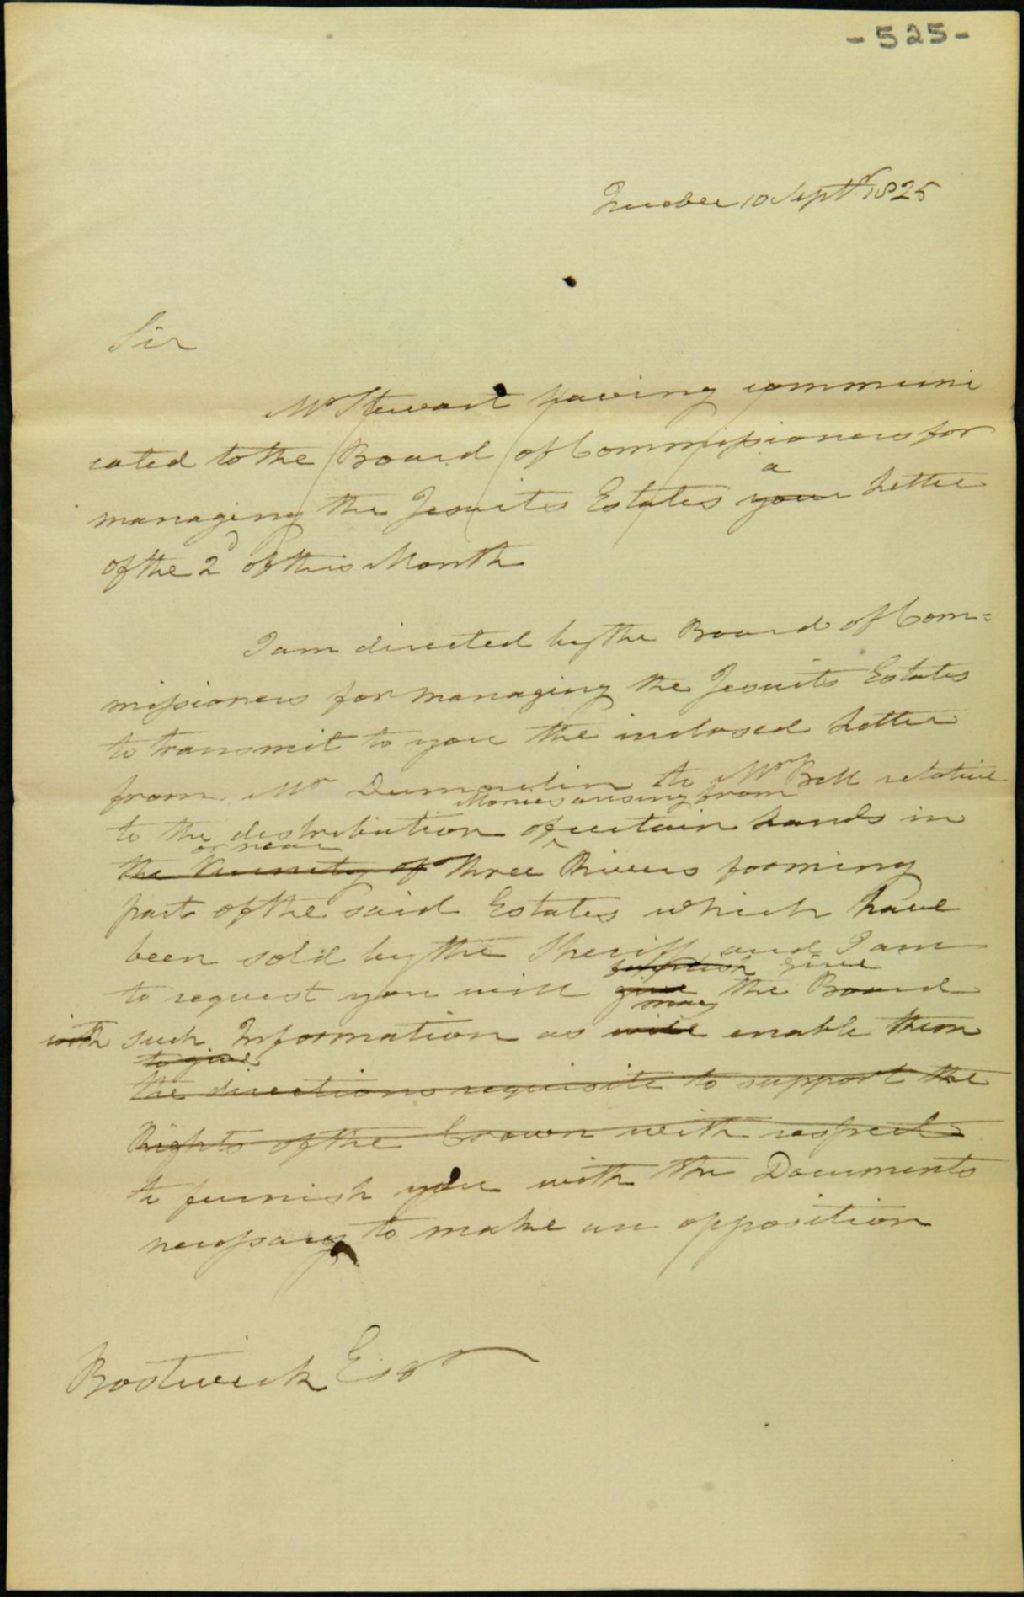 - 525 -
Quebec 10 Septr 1825
Sir
Mr Stewart having communi
cated to the Board of Commissioners for
a
managing the Jesuits Estates your Letter
of the 2d of this Month
I am directed by the Board of Com=
missioners for managing the Jesuits Estates
to transmit to you the inclosed Letter
from Mr Dumoulin to Mr Bell relative
Monies arising from
to the distribution of certain Lands in
or near
the Vicinity of Three Rivers forming
part of the said Estates which have
been sold by the Sheriff and I am
furnish give
to request you will give the Board
may
with such Information as will enable them
to give
the directions requisite to support the
Rights of the Crown with respect
to furnish you with the Documents
necessary to make an opposition
Bostwick Esqr